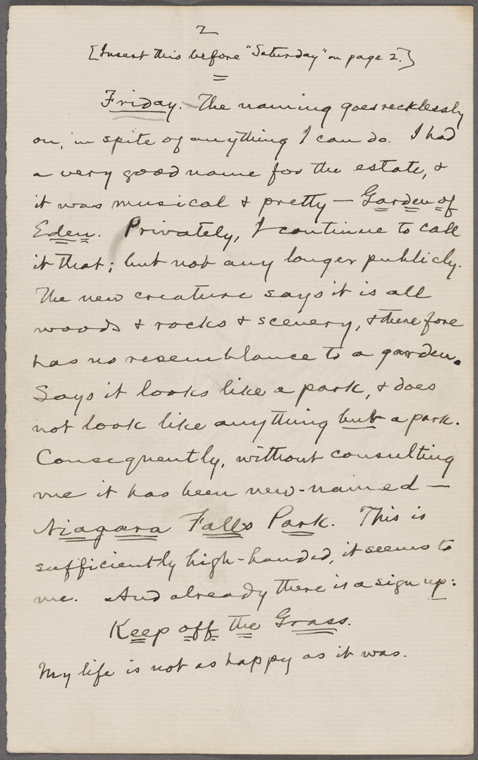 2
[Insert this before "Saturday" on page 2.]
Friday. The naming goes recklessly
on, in spite of anything I can do. I had
a very good name for the estate, &
it was musical & pretty — Garden of
Eden. Privately, I continue to call
it that; but not any longer publicly.
The new creature says it is all
woods & rocks & scenery, & therefore
has no resemblance to a garden.
Says it looks like a park, & does
not look like anything but a park.
Consequently, without consulting
me it has been new-named —
Niagara Falls Park. This is
sufficiently high-handed, it seems to
me. And already there is a sign up:
Keep off the Grass.
My life is not as happy as it was.